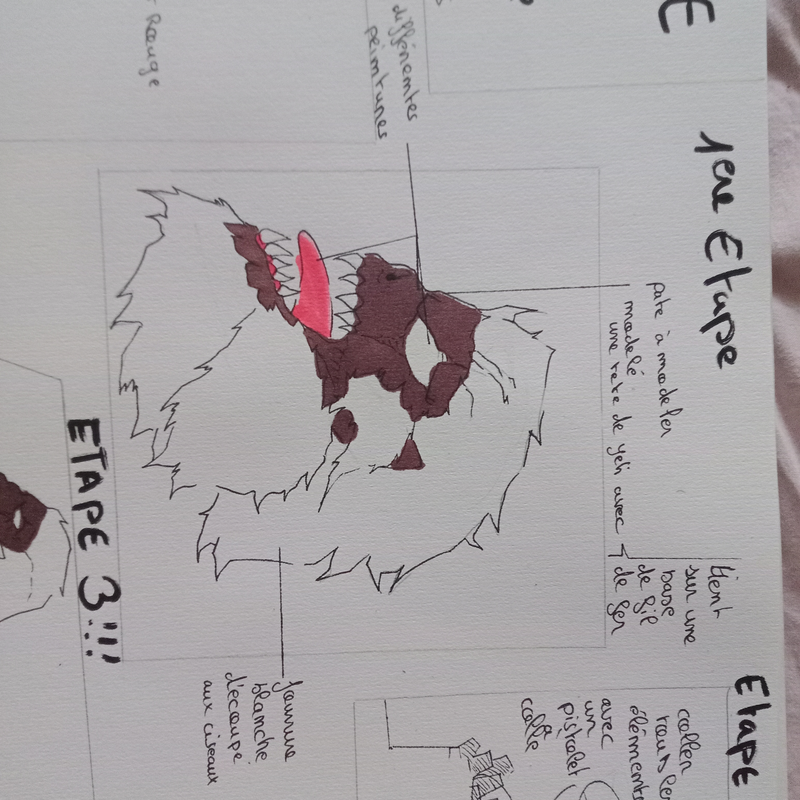 1ère Etape
différentes
peintures
Rouge
pate à modeler
modelé
une tete de yeti avec
tient
sur une
base
de fil
de fer
fourrure
blanche
découpé
aux ciseaux
ETAPE 3!!!
Etape
coller
tous les
éléments
avec
un
pistolet
à colle